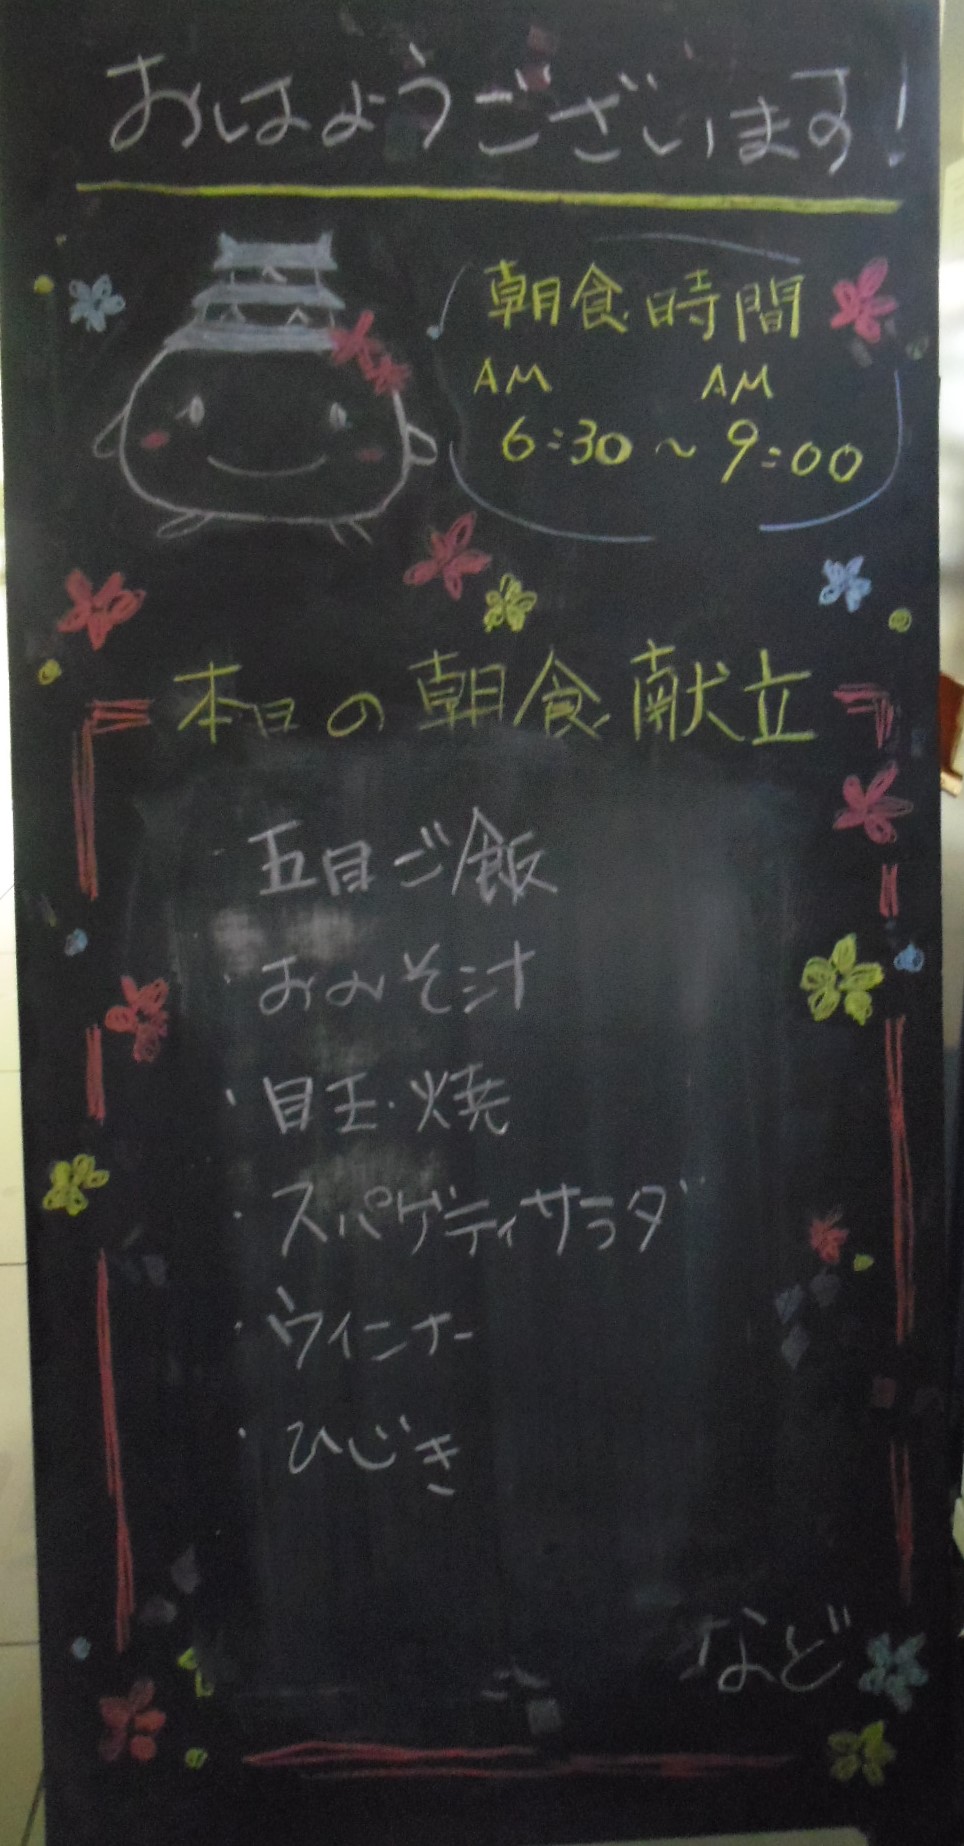 おはようございます!
朝食時間
AM AM
6:30～9:00
本日の朝食献立
・五目ご飯
・おみそ汁
・目玉焼
・スパゲティサラダ
・ウインナー
・ひじき
など